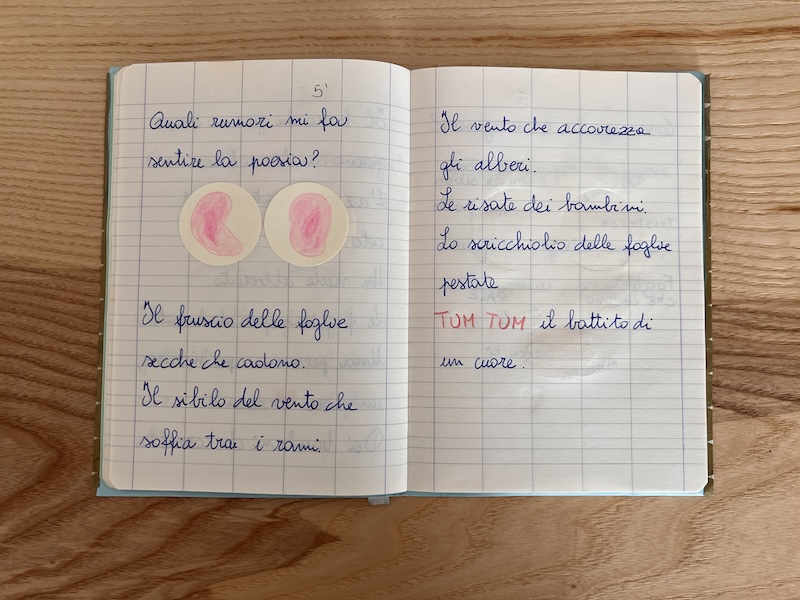 5'
Quali rumori mi fa
sentire la poesia?
Il fruscio delle foglie
secche che cadono.
Il sibilo del vento che
soffia tra i rami.
Il vento che accarezza
gli alberi.
Le risate dei bambini.
Lo scricchiolio delle foglie
pestate
TUM TUM il battito di
un cuore.